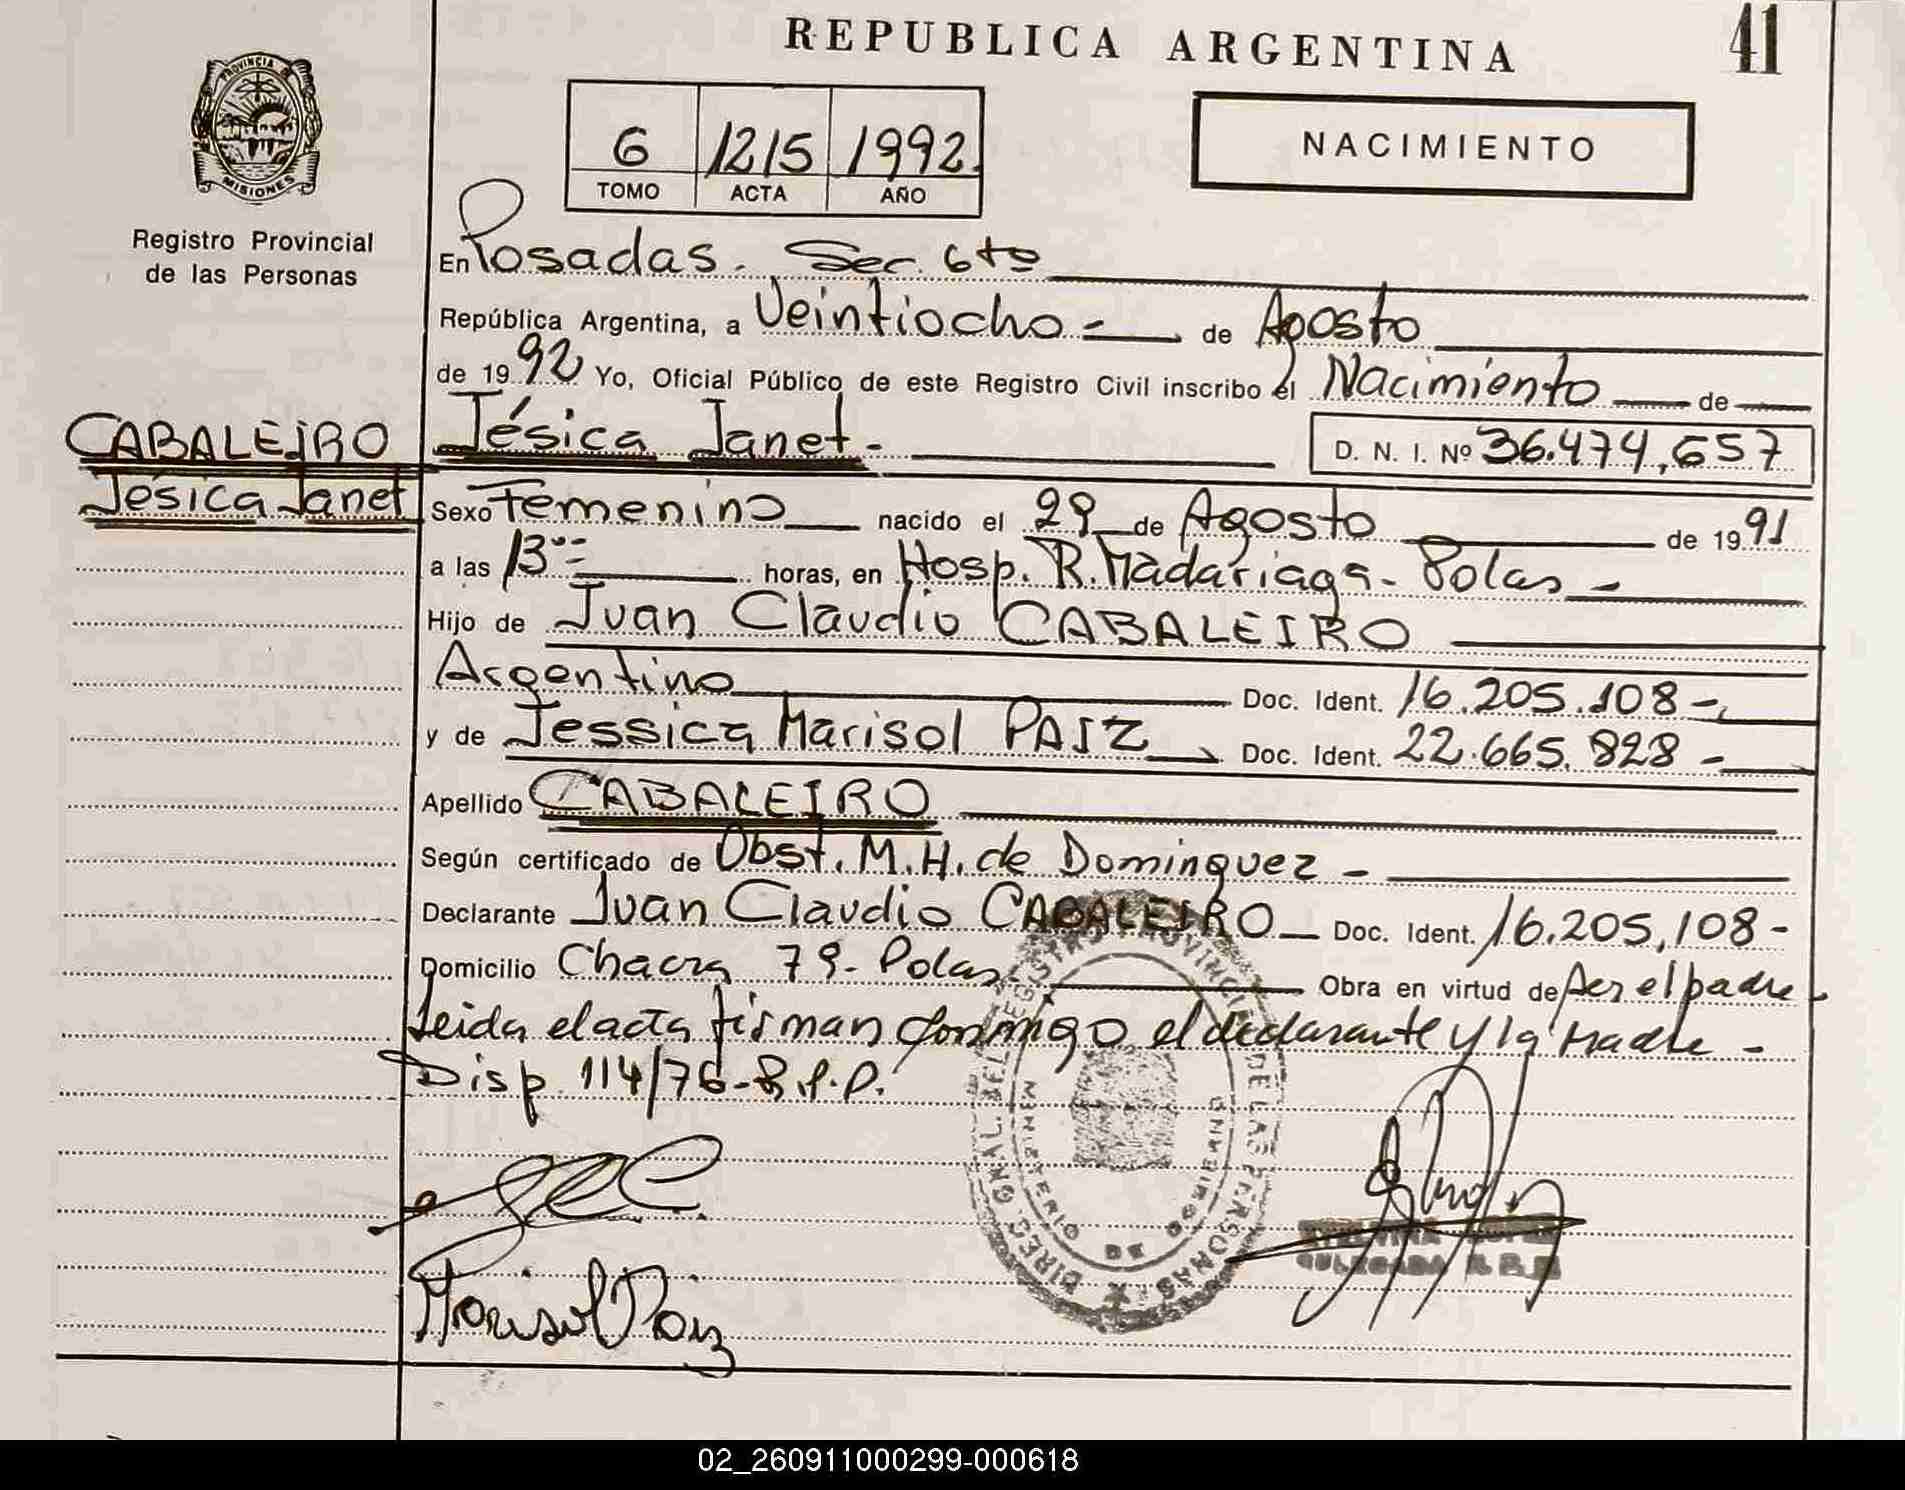 REPUBLICA ARGENTINA
41
PROVINCIA DE
MISIONES
Registro Provincial
de las Personas
6 1215 1992.
TOMO ACTA AÑO
NACIMIENTO
En Posadas. Sec. 6ta
República Argentina, a Veintiocho - de Agosto
de 1992 Yo, Oficial Público de este Registro Civil inscribo el Nacimiento de
CABALEIRO
Jésica Janet
Jésica Janet.- D. N. I. Nº 36.474,657
Sexo Femenino nacido el 29 de Agosto de 1991
a las 13 horas, en Hosp. R. Madariaga - Pdas -
Hijo de Juan Claudio CABALEIRO
Argentino Doc. Ident. 16.205.108-
y de Jessica Marisol PAIZ Doc. Ident. 22.665.828 -
Apellido CABALEIRO
Según certificado de Obst. M. H. de Dominguez -
Declarante Juan Claudio CABALEIRO Doc. Ident. 16.205,108 -
Domicilio Chacra 79 - Pdas Obra en virtud de ser el padre
Leida el acta firman conmigo el declarante y la Madre -
Disp. 114/76 - R.P.P.
DIREC. GNAL. DEL REGISTRO PROVINCIAL DE LAS PERSONAS
MINISTERIO DE GOBIERNO
Marisol Paiz
02_260911000299-000618